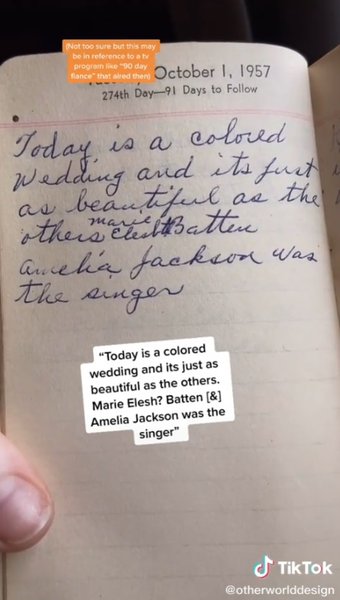 (Not too sure but this may
be in reference to a tv
program like "90 day
fiance" that aired then)
October 1, 1957
274th Day—91 Days to Follow
Today is a colored
Wedding and its just
as beautiful as the
others marie Batten
Amelia Jackson was
the singer
"Today is a colored
wedding and its just as
beautiful as the others.
Marie Elesh? Batten [&]
Amelia Jackson was the
singer"
TikTok
@otherworlddesign